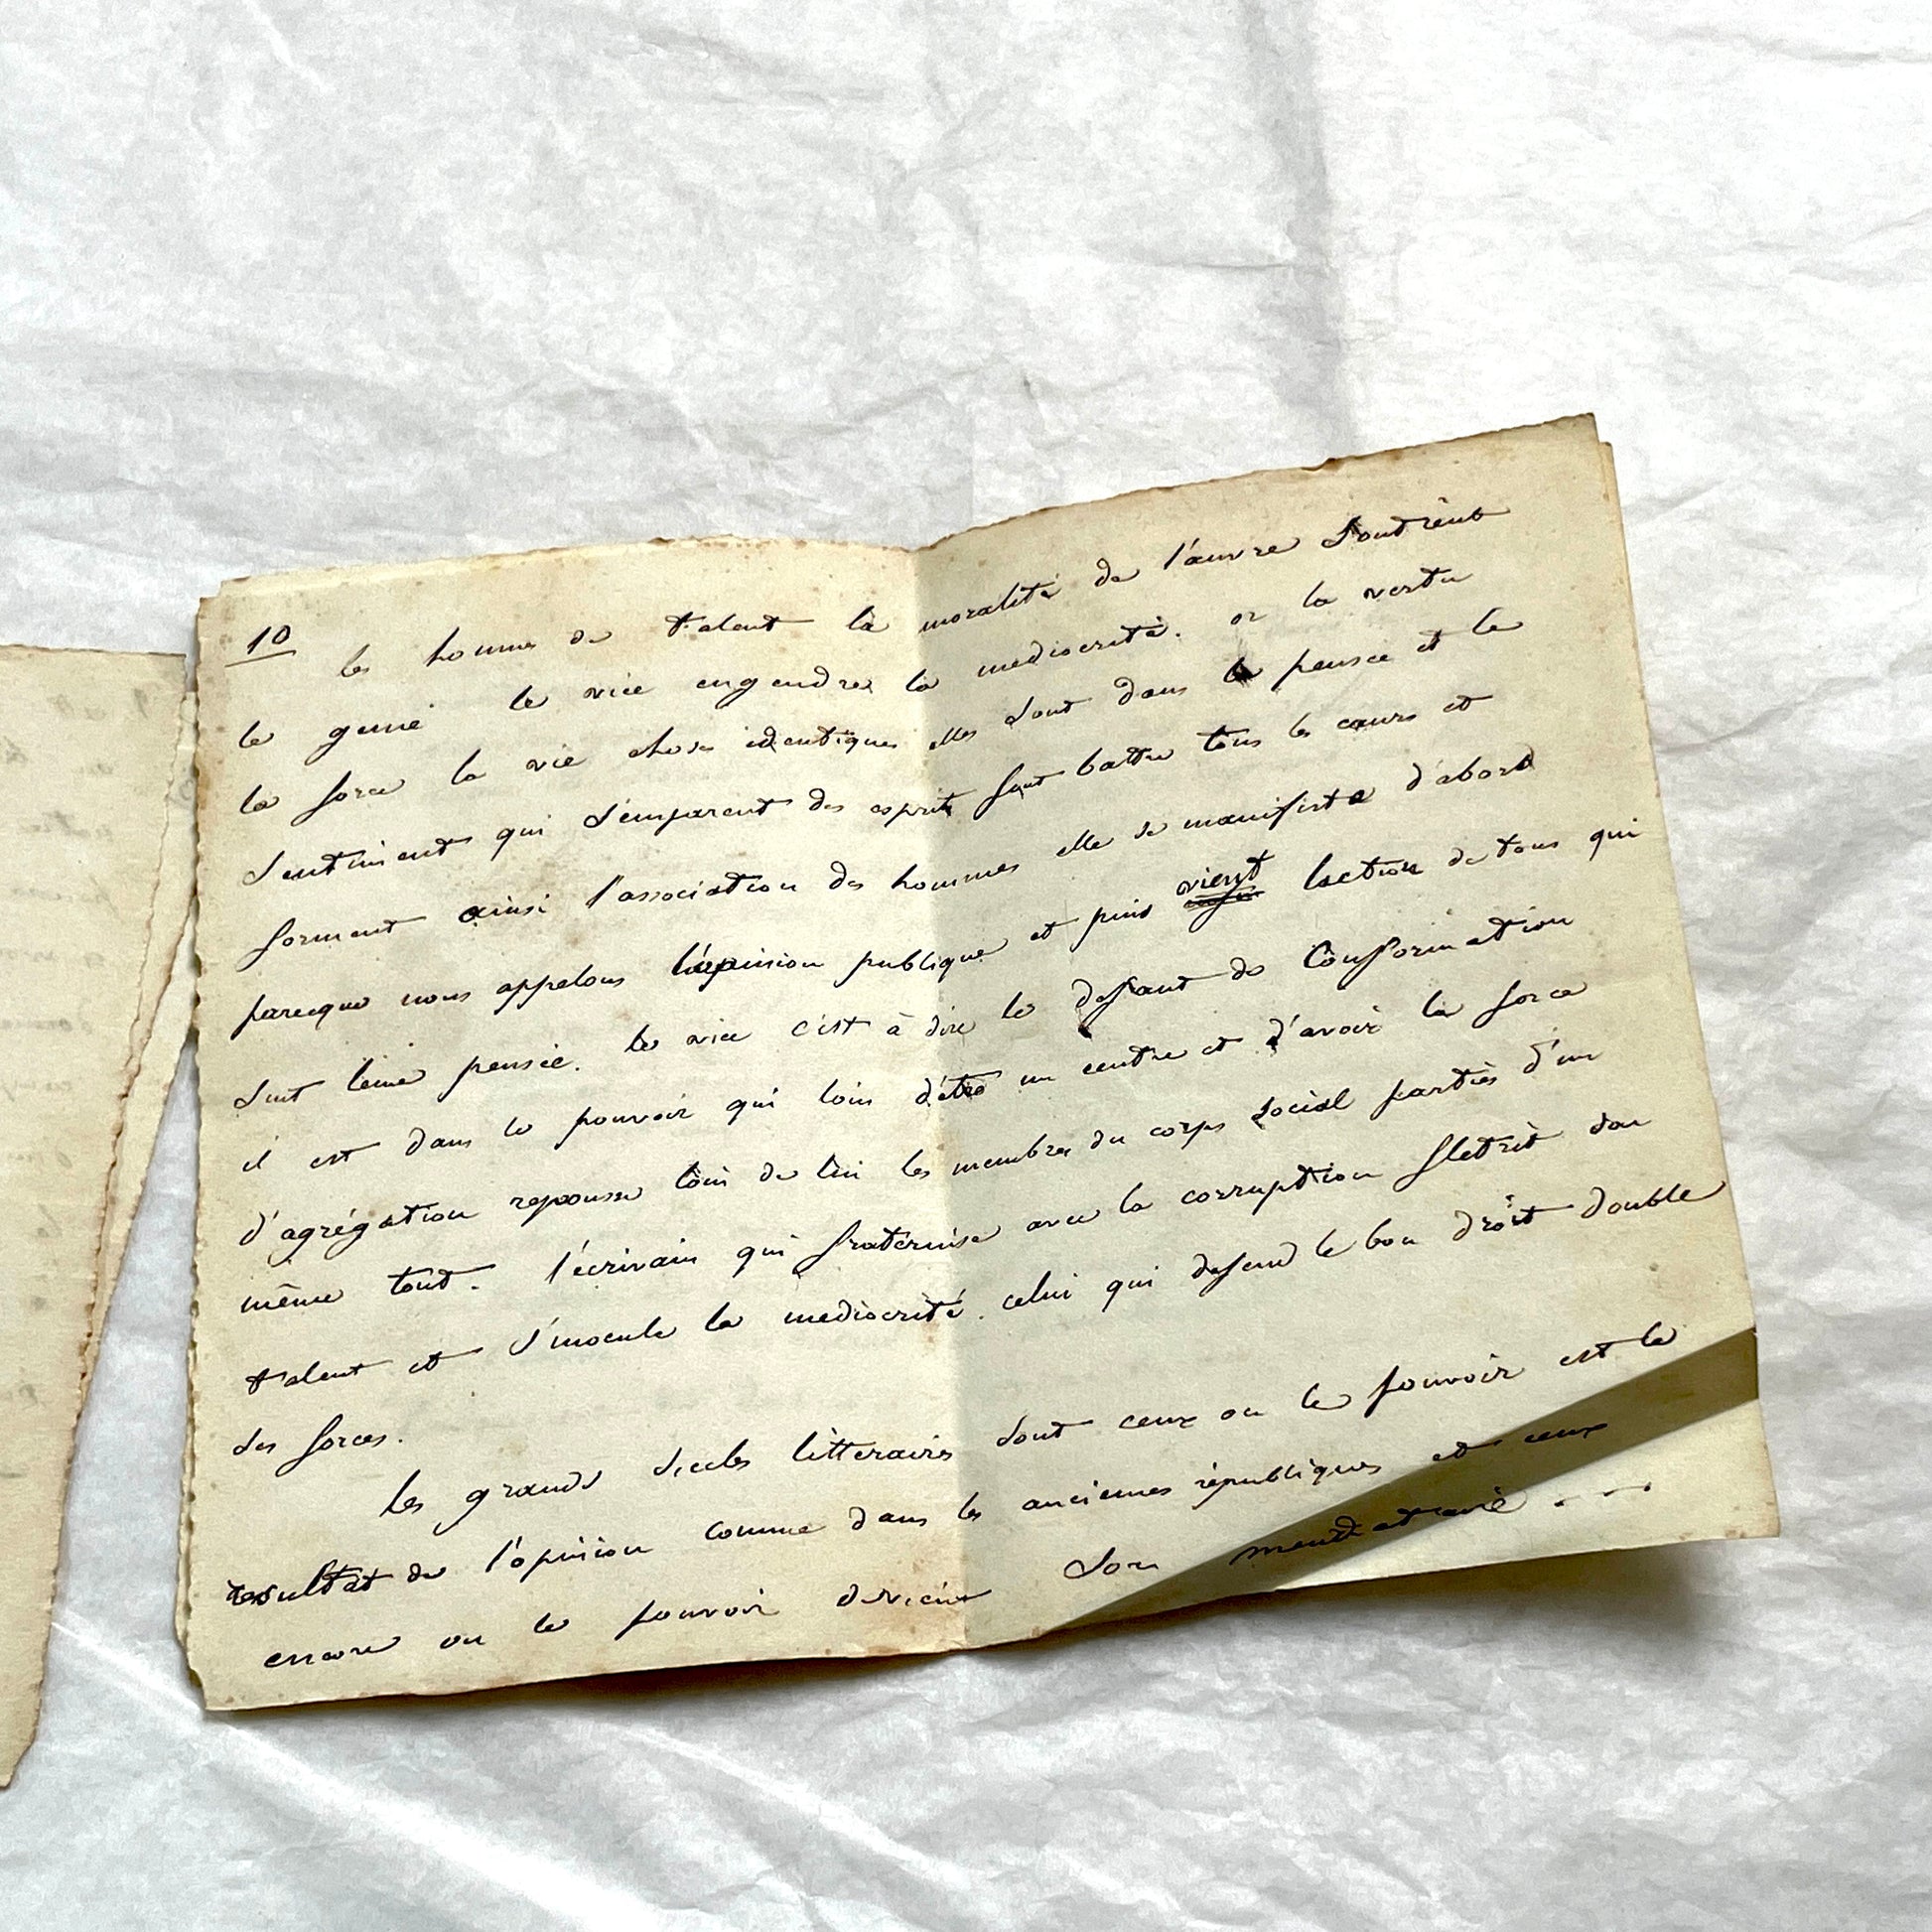 10
les homme de talent la moralité de l'œuvre soutient
le genie le vice engendre la mediocrité. or la vertu
la force la vie chose identiques elles sont dans la pensée et le
sentiment qui s'emparent des esprits font battre tous les cœurs et
forment ainsi l'association des hommes elle se manifeste d'abord
parceque nous appelons l'opinion publique et puis vient laction de tous qui
suit leur pensée. le vice c'est à dire le defaut de conformation
il est dans le pouvoir qui loin d'être un centre et d'avoir la force
d'agrégation repousse loin de lui les membres du corps social parties d'un
même tout. l'écrivain qui fraternise avec la corruption fletrit son
talent et s'inocule la mediocrité. celui qui defend le bon droit double
ses forces.
les grands siecles litteraires sont ceux ou le pouvoir est le
resultat de l'opinion comme dans les anciennes républiques et ceux
encore ou le pouvoir devient son mandataire ....